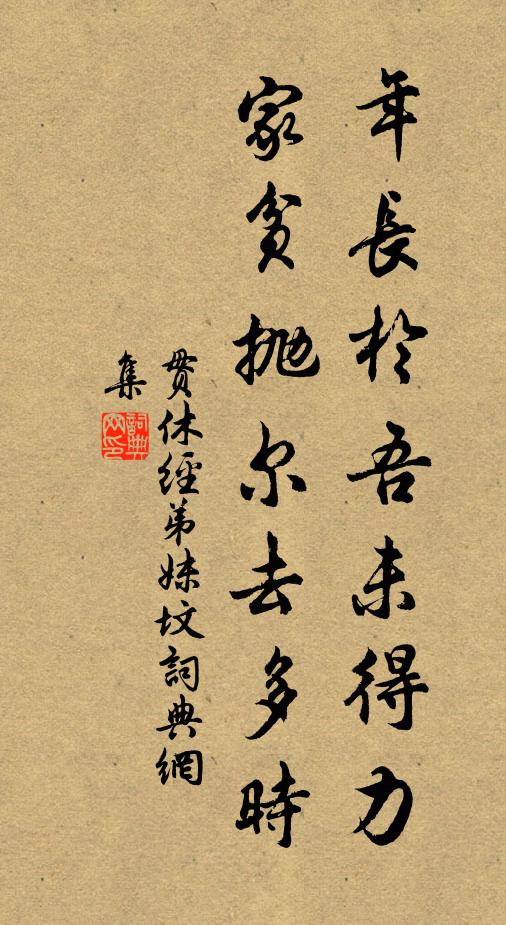 年長於吾未得力
家貧拋尔去多時
貫休經弟妹坟詞典網
集
詞典
网印